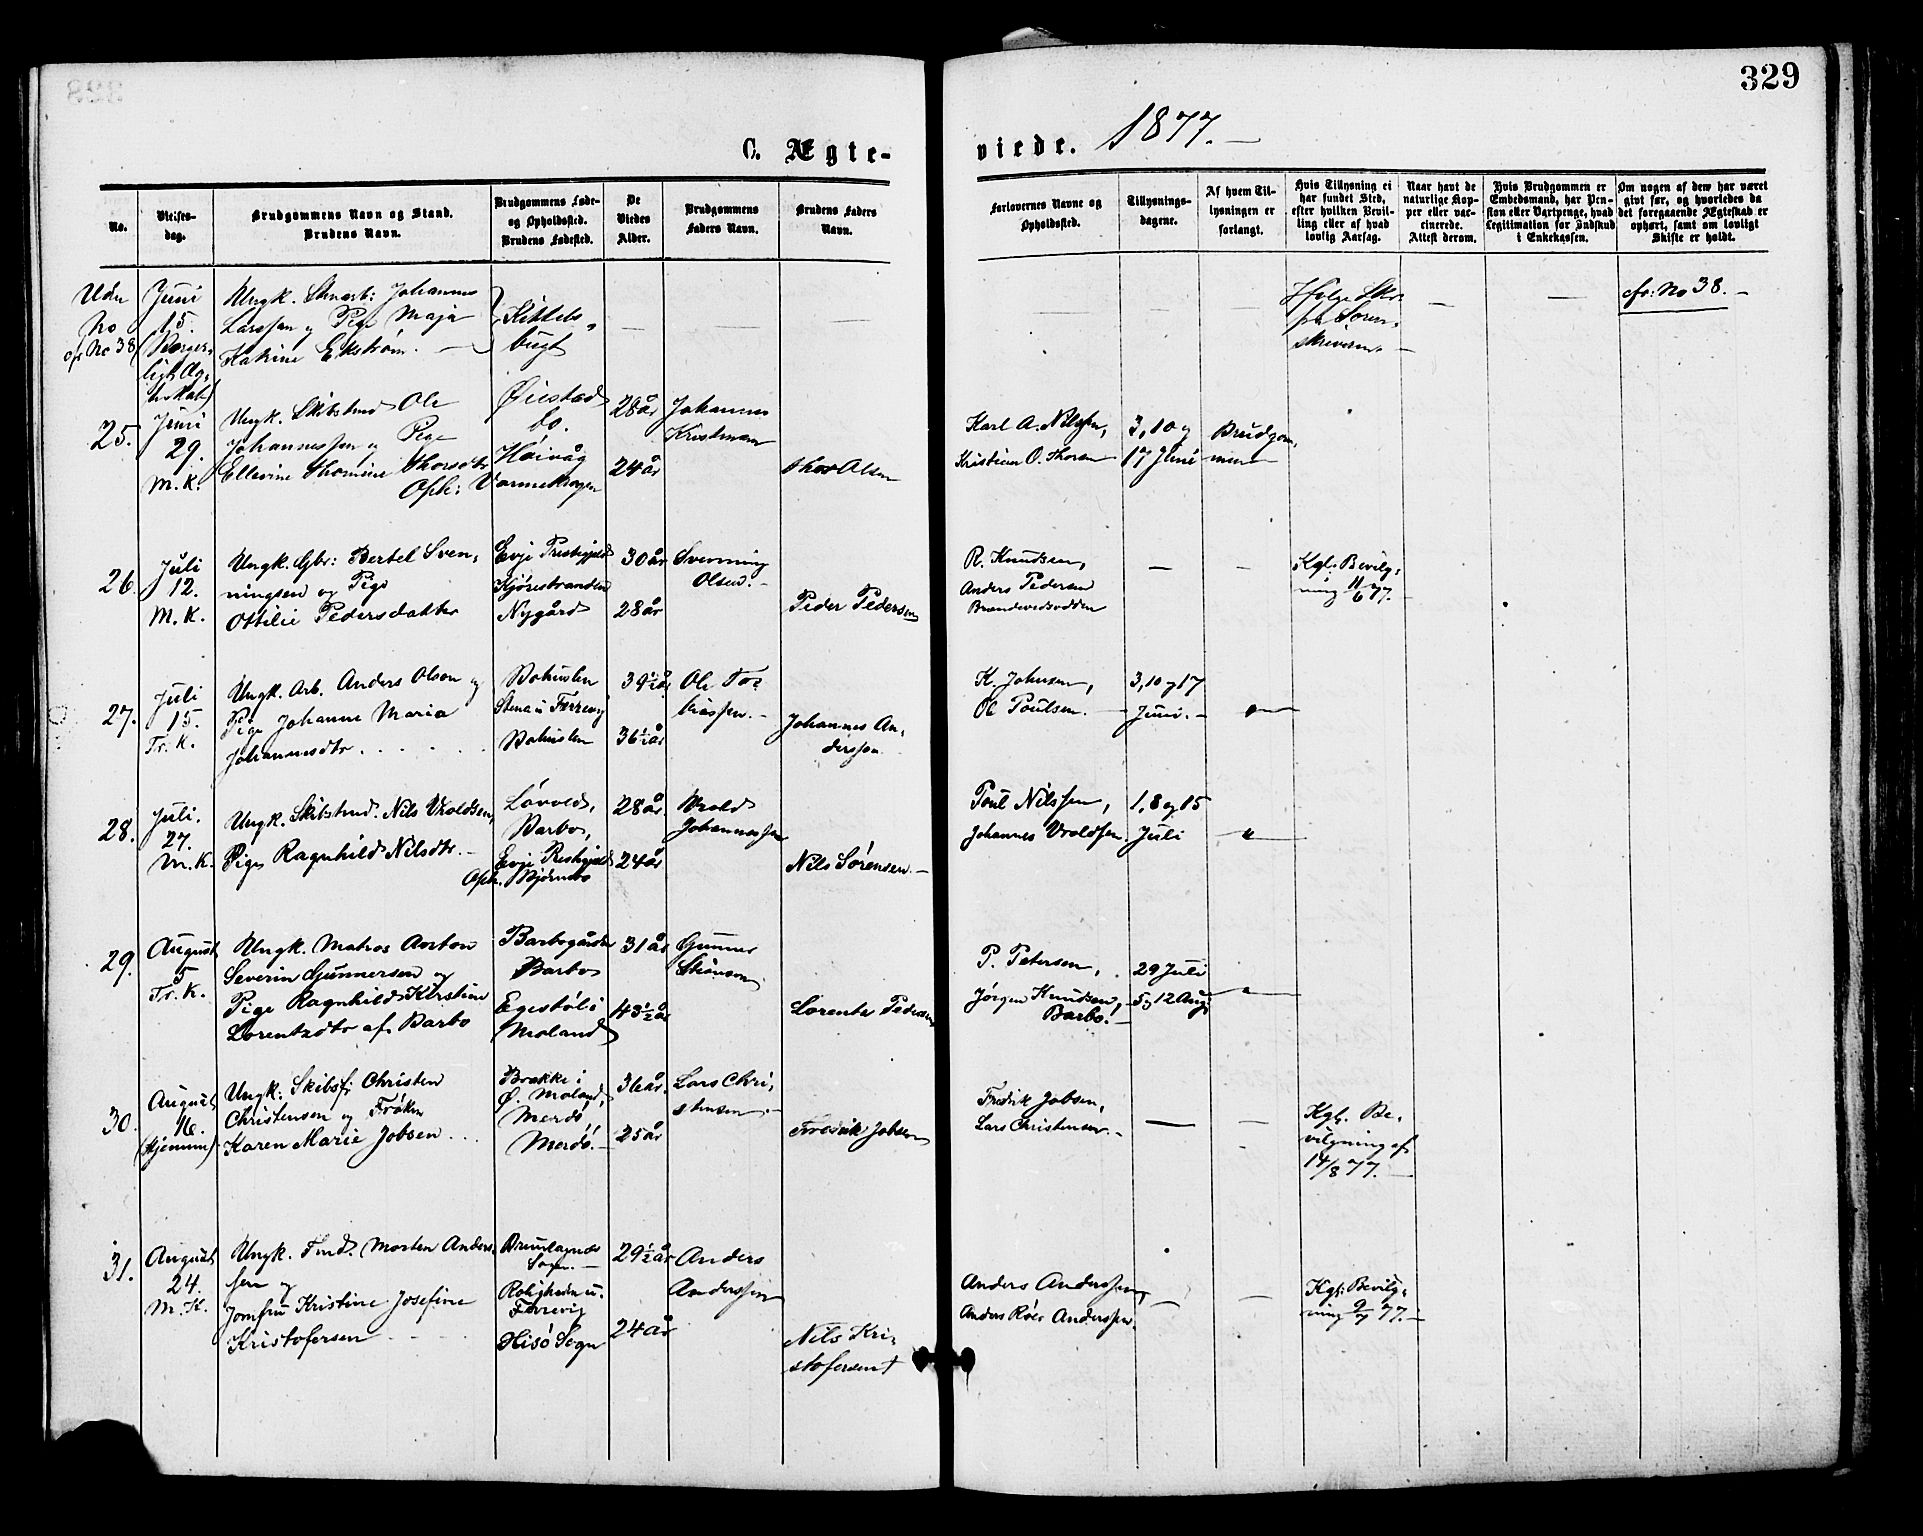 329
C. Ægte-
viede. 1877.-
No.
Vielses-
dag.
Brudgommens Navn og Stand.
Brudens Navn.
Brudgommens Føde-
og Opholdssted.
Brudens Fødested.
De
Viedes
Alder.
Brudgommens
Faders Navn.
Brudens Faders
Navn.
Forlovernes Navne og
Opholdssted.
Tillysnings-
dagene.
Af hvem Til-
lysningen er
forlangt.
Hvis Tillysning ei
har fundet Sted,
efter hvilken Bevil-
ling eller af hvad
lovlig Aarsag.
Naar havt de
naturlige Kop-
per eller vac-
cinerede.
Attest derom.
Hvis Brudgommen er
Embedsmand, har Pen-
sion eller Vartpenge, hvad
Legitimation for Indskud
i Enkekassen.
Om nogen af dem har været
gift før, og hvorledes da
det foregaaende Ægteskab er
ophørt, samt om lovligt
Skifte er holdt.
Uden
No
No 38
Juni
15.
(Borger-
ligt Æg-
teskab)
Ungk. Johannes
Larssen og Pige Maja
Katrine Ekstrøm. -
Kittels-
bugt
Ifølge Skr.
fra Soren-
skriveren. -
cfr. No 38. -
25.
Juni
29.
M. K.
Ungk. Skibstmd Ole
Johannessen og Pige
Ellevine Thomine Thorsdtr
Oph:
Øiestad
bo.
Høivåg
28 år
24 år
Johannes
Kristman
Thor Olsen
Karl A. Nilsen,
Kristian O. Thorsen
3, 10 og
17 Juni
Brudgom-
men
26.
Juli
12.
M. K.
Ungk. Gbr: Bertel Sven-
ningsen og Pige
Ottilie Pedersdatter
Evje Prestegjeld
Kjørestranden
Nygård
30 år
28 år
Svenning
Olsen. -
Peder Pedersen
R. Knudsen,
Anders Pedersen
Kgl. Bevilg-
ning 11/6 77.
27.
Juli
15.
Tr. K.
Ungk. Arb. Anders Olson og
Pige Johanne Maria
Johannesdtr . . . . .
Bohuslen
Stena u Færevig
Bohuslen
39½ år
36½ år
Ole To-
biassen. -
Johannes An-
dersson
K. Johnsen,
Ol Poulsen. -
3, 10 og 17
Juni. -
"
28.
Juli.
27.
M. K.
Ungk. Skibstmd. Nils Vroldsen,
Pige Ragnhild Nilsdtr. -
Oph.
Løvold,
Barbo,
Evje Prestegjeld
Bjørnebo
28 år.
24 år
Vrold
Johannessen
Nils Sørensen. -
Poul Nilssen,
Johannes Vroldsen
1, 8 og 15
Juli
"
29.
August
5
Tr. K.
Ungk. Matros Anton
Severin Gunnersen og
Pige Ragnhild Kirstine
Lorentzdtr af Barbo
Barbogården
Barbo
Egestøl i
Moland
31 år
43½ år
Gunner
Stianson
Lorents Pedersen
P. Petersen,
Jørgen Knudsen,
Barbo. -
29 Juli
5 og 12 Aug.
"
30.
August
16.
(Hjemme)
Ungk: Skibsf: Christen
Christensen og Frøken
Karen Marie Jobsen . . .
Brække i
Ø. Moland,
Merdø
Merdø. -
36 år.
25 år
Lars Chri-
stensen. -
Fredrik Jobsen
Fredrik Jobsen,
Lars Christensen. -
Kgl. Be-
vilgning af
14/8 77. -
31.
August
24.
M. K.
Ungk. Tmd. Morten Anders-
sen og
Jomfru Kristine Josefine
Kristofersen - - -
Brunlagnæs
Sogn. -
Roligheden u.
Færevig
Hisø Sogn
29½ år
24 år
Anders
Anderssen
Nils Kri-
stofersen †
Anders Anderssen,
Anders Röer Anderssen.
Kgl: Bevilg-
ning 9/7 77. -